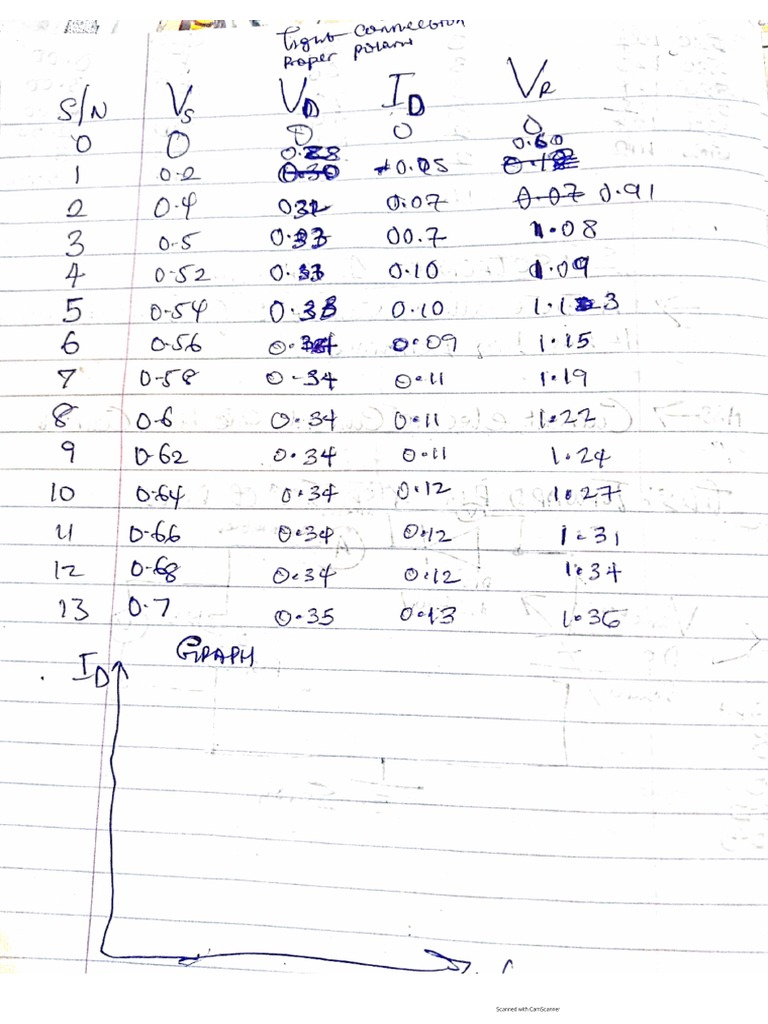 Tight connection
Proper polarit
S/N VS VD ID VR
0 0 0 0 0
1 0.2 0.30 0.28 0.05 0.60
2 0.4 032 0.07 0.07 0.91
3 0.5 0.33 00.7 1.08
4 0.52 0.33 0.10 1.09
5 0.54 0.33 0.10 1.13
6 0.56 0.34 0.09 1.15
7 0.58 0.34 0.11 1.19
8 0.6 0.34 0.11 1.22
9 0.62 0.34 0.11 1.24
10 0.64 0.34 0.12 1.27
11 0.66 0.34 0.12 1.31
12 0.68 0.34 0.12 1.34
13 0.7 0.35 0.13 1.36
GRAPH
ID
Scanned with CamScanner